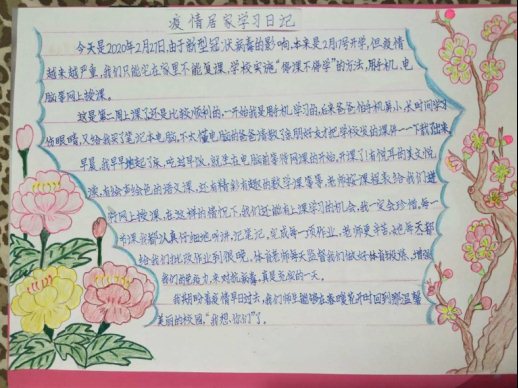 疫情居家学习日记
今天是2020年2月27日,由于新型冠状病毒的影响,本来是2月17号开学,但疫情
越来越严重,我们只能宅在家里不能复课,学校实施“停课不停学”的方法,用手机、电
脑等网上授课。
这是第二周上课了还是比较顺利的,一开始我是用手机学习的,后来爸爸怕手机屏小,长时间学习
伤眼睛,又给我买了笔记本电脑,不太懂电脑的爸爸请教了亲朋好友才把学校发的课件一一下载出来。
早晨,我早早地起了床,吃过早饭,就坐在电脑前等待网课的开始,开课了!有悦耳的英文
还有精彩有趣的数学课等等,老师按课程表给我们进
行网上授课,在这样的情况下,我们还能有上课学习的机会,我一定会珍惜,每一
节课我都认真仔细地听讲,记笔记,完成每一项作业,老师更辛苦,他每天都
给我们批改作业到很晚,体育老师每天监督我们做好体育锻炼,增强
我们的免疫力,来对抗病毒,真是充实的一天。
我期盼着疫情早日过去,我们师生能够在春暖花开时回到那温馨
美丽的校园,“我想你们”了。